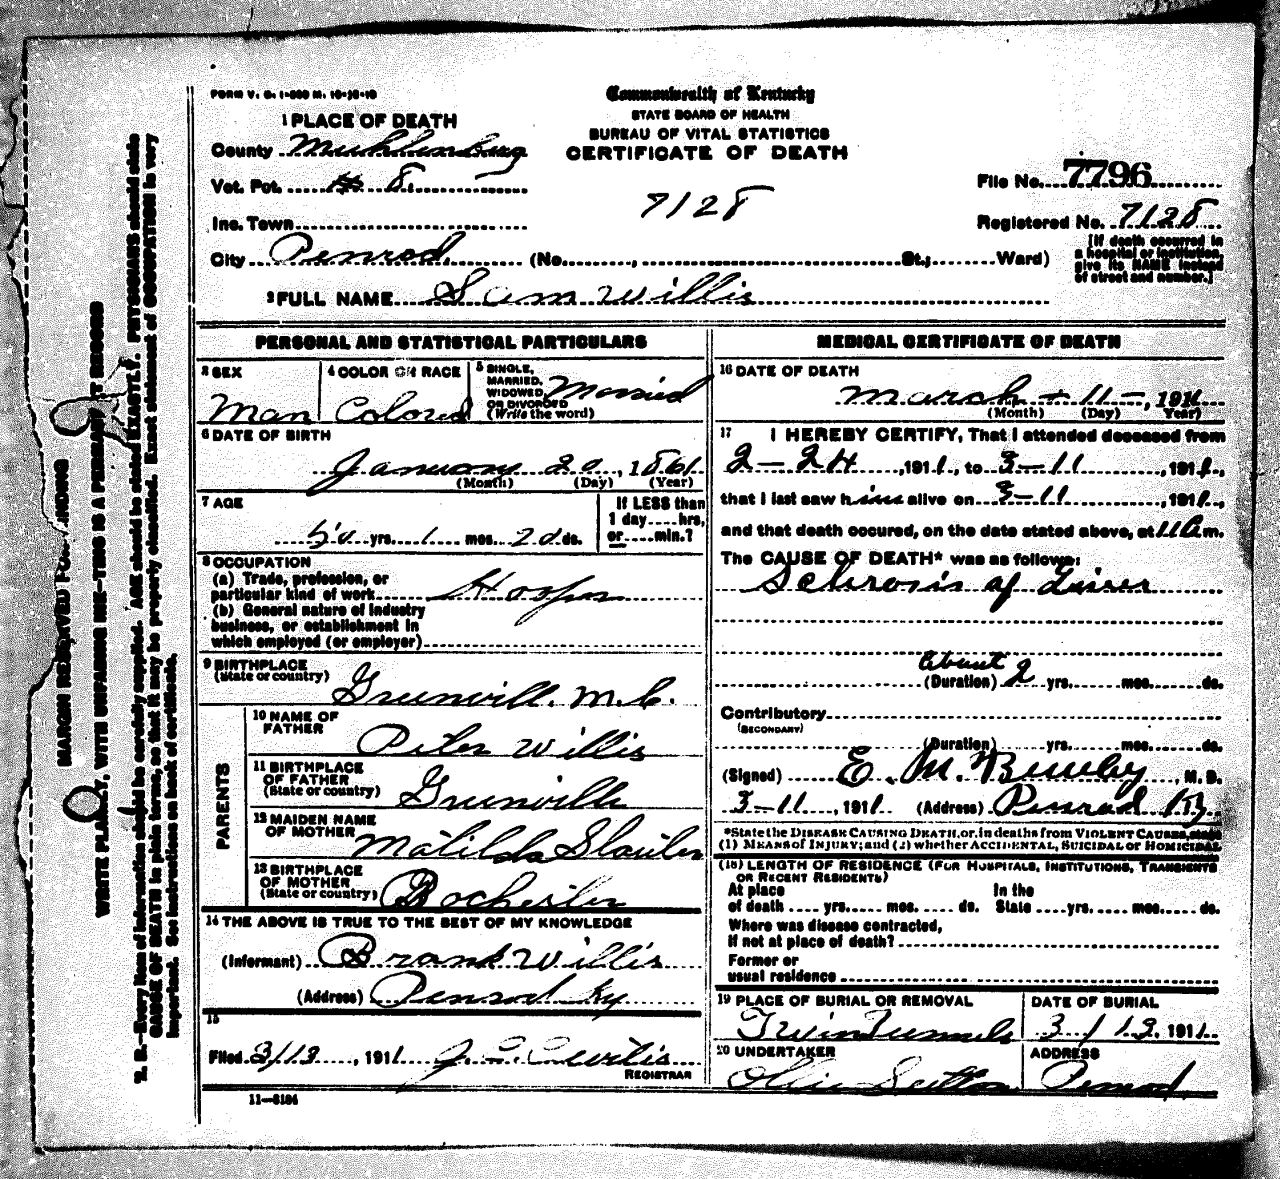 FORM V. S. 1-500 M. 10-10-10
Commonwealth of Kentucky
STATE BOARD OF HEALTH
BUREAU OF VITAL STATISTICS
CERTIFICATE OF DEATH
1 PLACE OF DEATH
County Muhlenburg
Vot. Pct. 8.
Inc. Town
City Penrod (No. , St.; Ward)
7128
File No. 7796
Registered No. 7128
[If death occurred in
a hospital or institution,
give its NAME instead
of street and number.]
2 FULL NAME Sam Willis
PERSONAL AND STATISTICAL PARTICULARS
3 SEX
Man
4 COLOR OR RACE
Colored
5 SINGLE,
MARRIED,
WIDOWED,
OR DIVORCED
(Write the word)
Married
6 DATE OF BIRTH
January 20, 1861
(Month) (Day) (Year)
7 AGE
50 yrs. 1 mos. 20 ds.
If LESS than
1 day.....hrs,
or.....min.?
8 OCCUPATION
(a) Trade, profession, or
particular kind of work
(b) General nature of industry
business, or establishment in
which employed (or employer)
9 BIRTHPLACE
(State or country)
10 NAME OF
FATHER
Peter Willis
11 BIRTHPLACE
OF FATHER
(State or country)
12 MAIDEN NAME
OF MOTHER
Matilda
13 BIRTHPLACE
OF MOTHER
(State or country)
Rochester
PARENTS
14 THE ABOVE IS TRUE TO THE BEST OF MY KNOWLEDGE
(Informant) Willis
(Address) Penrod Ky
15
Filed 3/13, 1911 J. E. Curtis
REGISTRAR
11-8184
MEDICAL CERTIFICATE OF DEATH
16 DATE OF DEATH
March 11, 1911
(Month) (Day) Year)
17 I HEREBY CERTIFY, That I attended deceased from
2-24, 1911, to 3-11, 1911,
that I last saw him alive on 3-11, 1911,
and that death occured, on the date stated above, at 11 a m.
The CAUSE OF DEATH* was as follows:
Schrosis of Liver
about
(Duration) 2 yrs. mos. ds.
Contributory
(SECONDARY)
(Duration) yrs. mos. ds.
(Signed) E. M. , M. D.
3-11, 1911 (Address) Penrod Ky
*State the DISEASE CAUSING DEATH, or, in deaths from VIOLENT CAUSES, state
(1) MEANS of INJURY; and (2) whether ACCIDENTAL, SUICIDAL or HOMICIDAL
(18) LENGTH OF RESIDENCE (FOR HOSPITALS, INSTITUTIONS, TRANSIENTS
OR RECENT RESIDENTS)
At place
of death .... yrs. .... mos. .... ds.
In the
State .... yrs. .... mos. .... ds.
Where was disease contracted,
If not at place of death?
Former or
usual residence
19 PLACE OF BURIAL OR REMOVAL
Twin Tunnels
DATE OF BURIAL
3/13, 1911
20 UNDERTAKER
Ollie Sutton
ADDRESS
Penrod
MARGIN RESERVED FOR BINDING
WRITE PLAINLY, WITH UNFADING INK—THIS IS A PERMANENT RECORD
N. B.—Every item of information should be carefully supplied. AGE should be stated EXACTLY. PHYSICIANS should state
CAUSE OF DEATH in plain terms, so that it may be properly classified. Exact statement of OCCUPATION is very
important. See instructions on back of certificate.